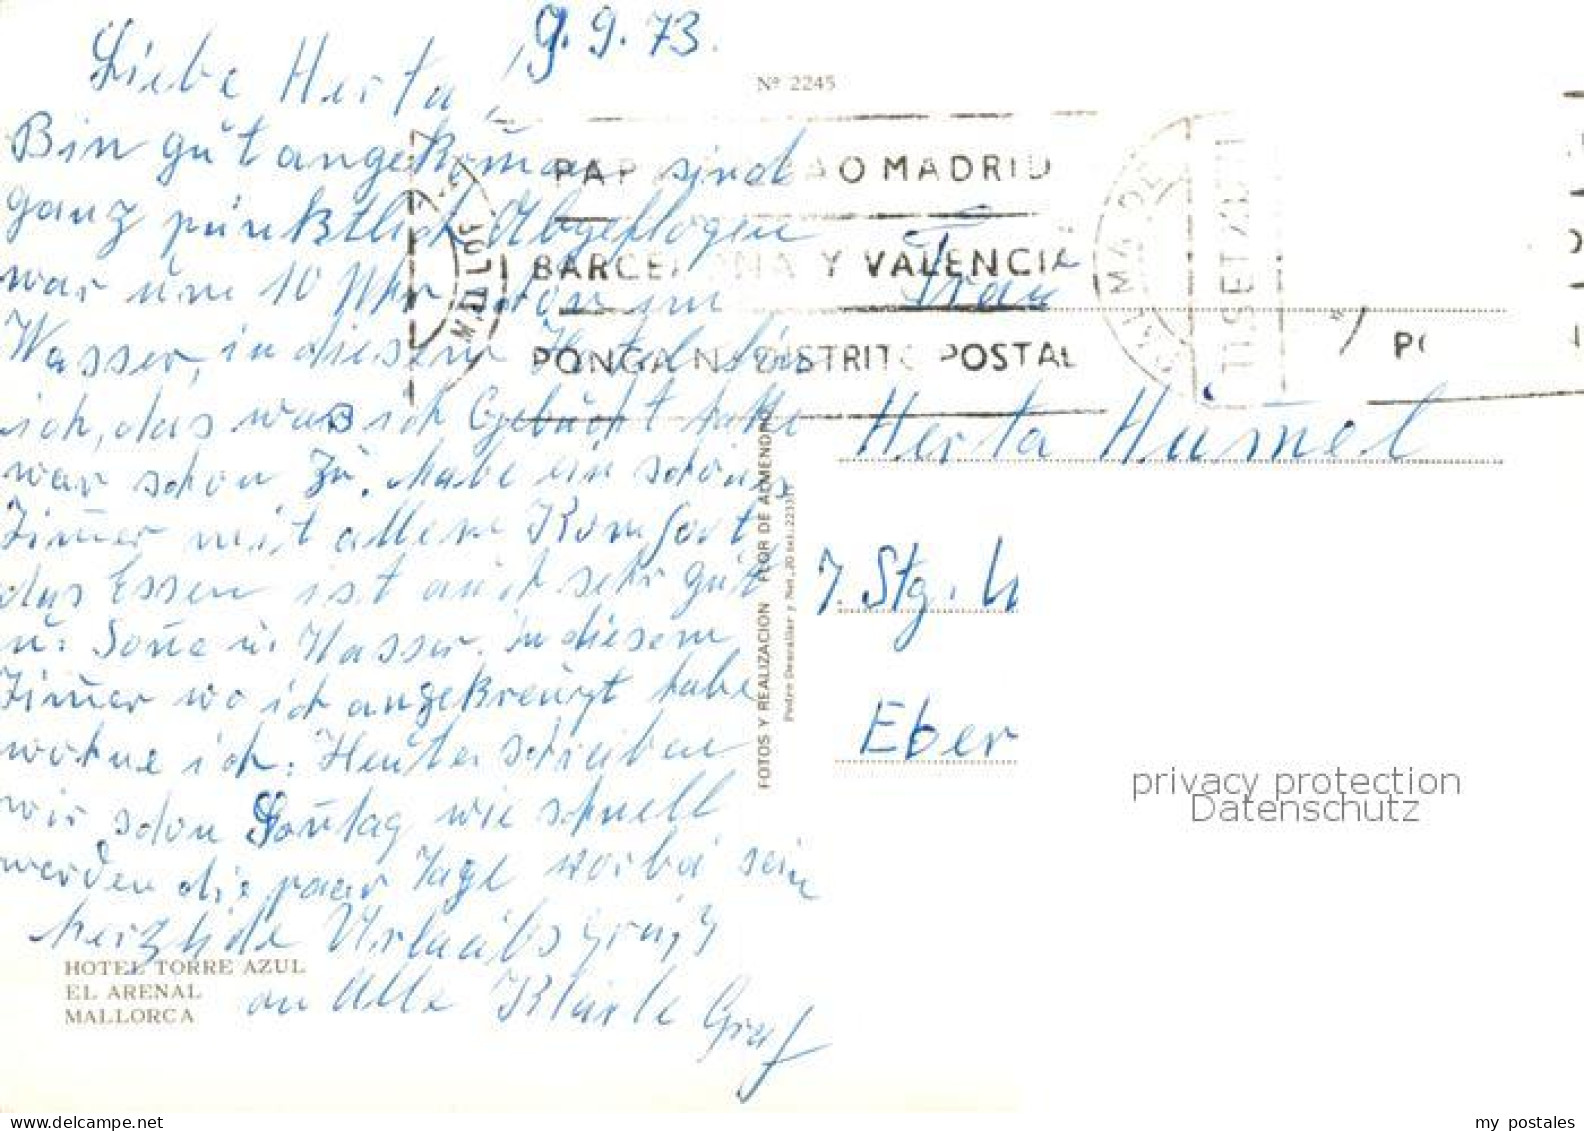 9.9.73.
Liebe Herta,
Nº 2245
Bin gut angekommen sind
PAP AO MADRID
ganz pünktlich Abgeflogen
BARCELONA Y VALENCIA
war um 10 Uhr schon im
Wasser, in diesem Hotel bin
PONGA Nº DISTRITO POSTAL
PALMA DE
11.SET
ich, das was ich Gebucht hatte
war schon zu. habe ein schönes
Zimmer mit allem Komfort
das Essen ist auch sehr gut
u. Sonne u. Wasser. In diesem
Zimmer wo ich angekreuzt habe
wohne ich. Heute schreiben
wir schon Sonntag wie schnell
werden die paar Tage vorbei sein
herzliche Urlaubsgrüße
an Alle Klärle Graf
HOTEL TORRE AZUL
EL ARENAL
MALLORCA
FOTOS Y REALIZACION FLOR DE ALMENDRO
Frau
Herta Humel
7. Stg. 
Eber
privacy protection
Datenschutz
my postales